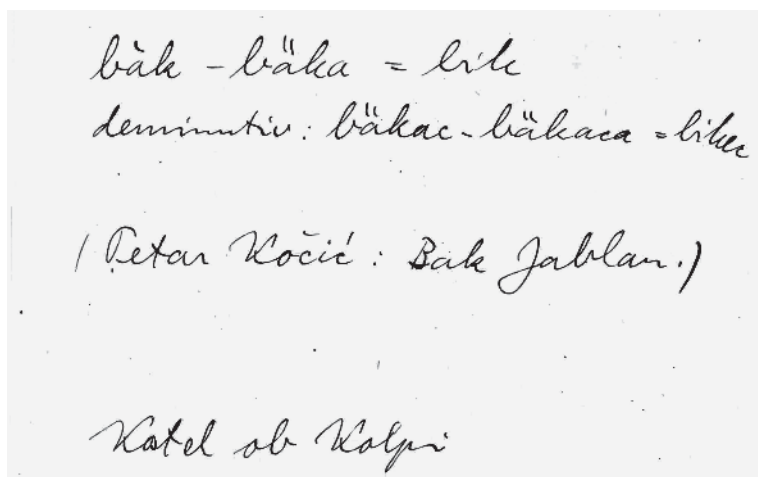 bȁk - bȁka = bik
deminutiv: bȁkac - bȁkaca = bikec
(Petar Kočić: Bak Jablan.)
Kostel ob Kolpi